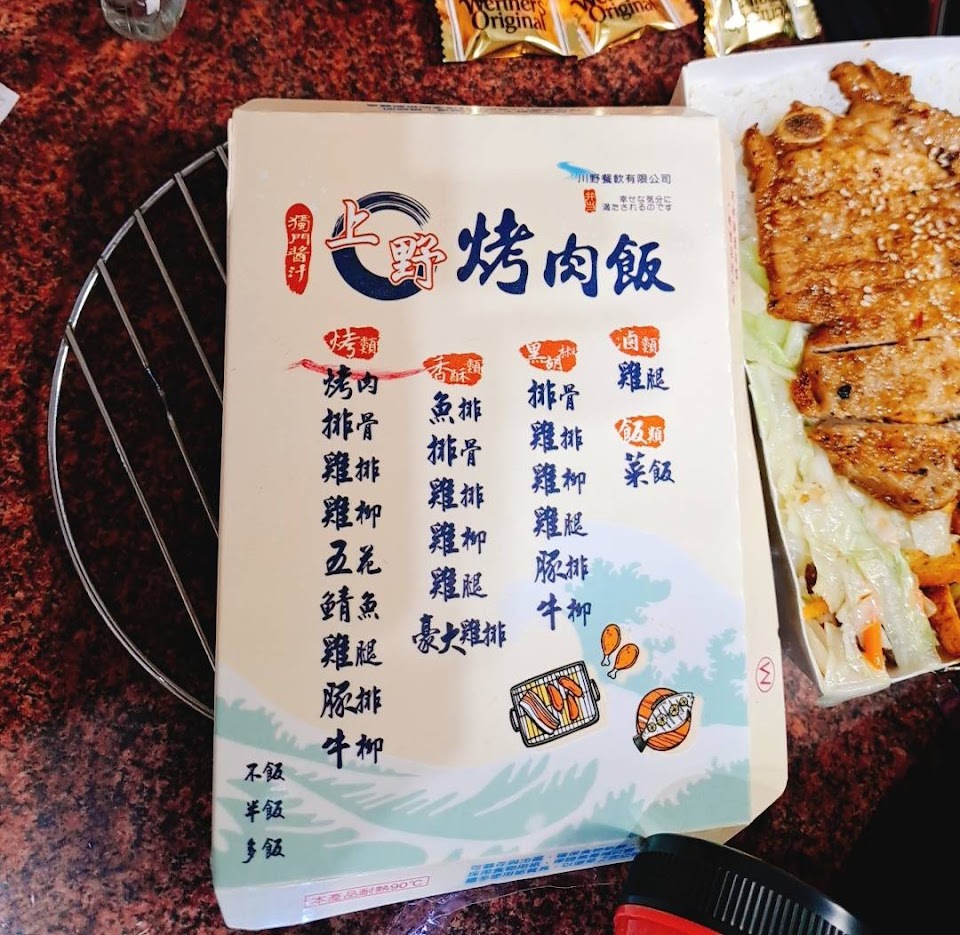 Werther's
Original
Original
川野餐飲有限公司
弁当
幸せな気分に
満たされるのです
獨門醬汁
上野烤肉飯
烤類
烤肉
排骨
雞排
雞柳
五花
鯖魚
雞腿
豚排
牛柳
香酥類
魚排
排骨
雞排
雞柳
雞腿
豪大雞排
黑胡椒
排骨
雞排
雞柳
雞腿
豚排
牛柳
滷類
雞腿
飯類
菜飯
不飯
半飯
多飯
本產品耐熱90℃